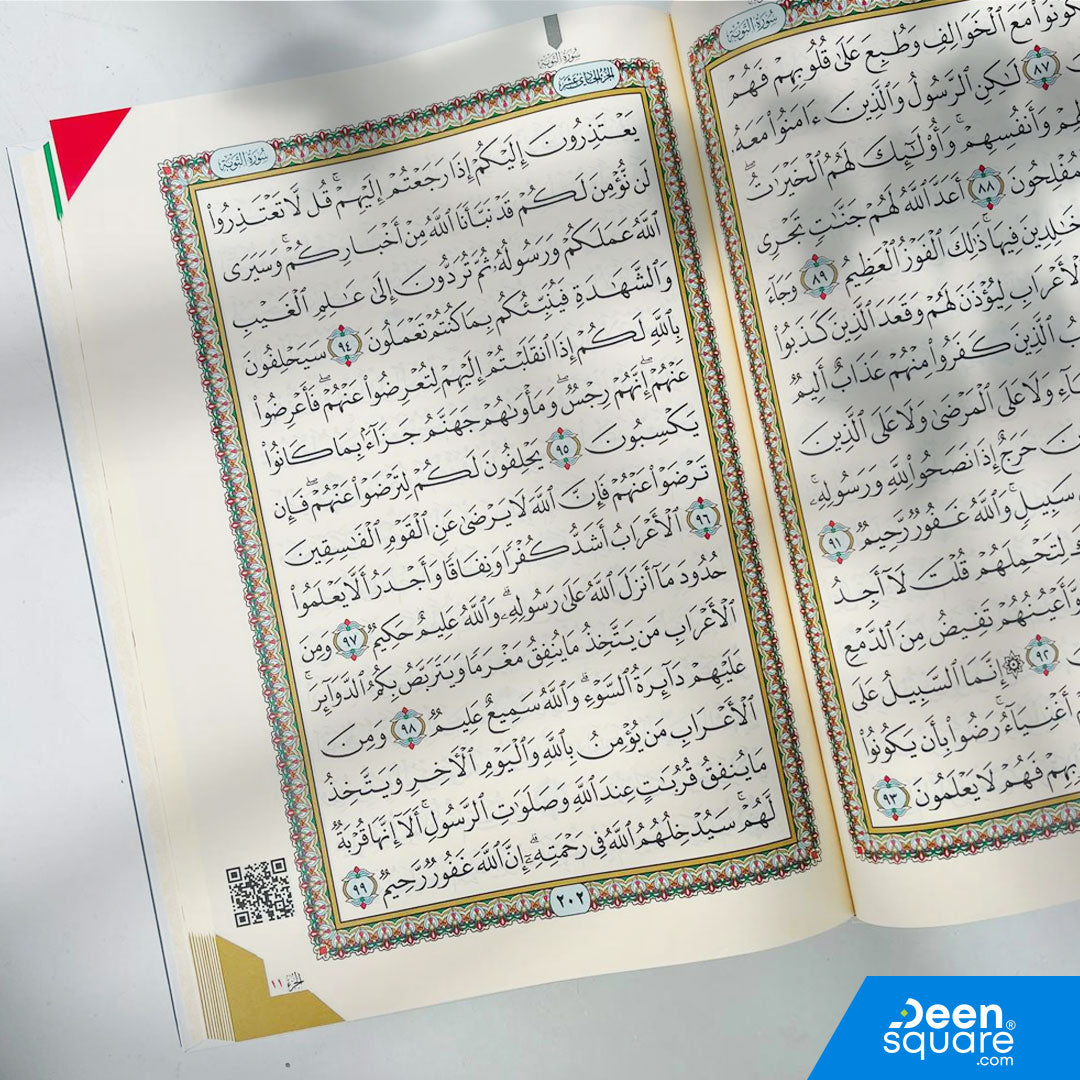 سُورَةُ التَّوْبَةِ
كُونُوا۟ مَعَ ٱلْخَوَالِفِ وَطُبِعَ عَلَىٰ قُلُوبِهِمْ فَهُمْ
٨٧ لَـٰكِنِ ٱلرَّسُولُ وَٱلَّذِينَ ءَامَنُوا۟ مَعَهُۥ
وَأَنفُسِهِمْ ۚ وَأُو۟لَـٰٓئِكَ لَهُمُ ٱلْخَيْرَٰتُ ۖ
ٱلْمُفْلِحُونَ ٨٨ أَعَدَّ ٱللَّهُ لَهُمْ جَنَّـٰتٍ تَجْرِى
خَـٰلِدِينَ فِيهَا ۚ ذَٰلِكَ ٱلْفَوْزُ ٱلْعَظِيمُ ٨٩ وَجَآءَ
ٱلْأَعْرَابِ لِيُؤْذَنَ لَهُمْ وَقَعَدَ ٱلَّذِينَ كَذَبُوا۟
ٱلَّذِينَ كَفَرُوا۟ مِنْهُمْ عَذَابٌ أَلِيمٌ
وَلَا عَلَى ٱلْمَرْضَىٰ وَلَا عَلَى ٱلَّذِينَ
حَرَجٌ إِذَا نَصَحُوا۟ لِلَّهِ وَرَسُولِهِۦ ۚ
سَبِيلٍ ۚ وَٱللَّهُ غَفُورٌ رَّحِيمٌ ٩١
لِتَحْمِلَهُمْ قُلْتَ لَآ أَجِدُ
وَّأَعْيُنُهُمْ تَفِيضُ مِنَ ٱلدَّمْعِ
٩٢ ۞ إِنَّمَا ٱلسَّبِيلُ عَلَى
أَغْنِيَآءُ ۚ رَضُوا۟ بِأَن يَكُونُوا۟
فَهُمْ لَا يَعْلَمُونَ ٩٣
سُورَةُ التَّوْبَةِ
الجُزْءُ الحَادِي عَشَرَ
سُورَةُ التَّوْبَةِ
يَعْتَذِرُونَ إِلَيْكُمْ إِذَا رَجَعْتُمْ إِلَيْهِمْ ۚ قُل لَّا تَعْتَذِرُوا۟
لَن نُّؤْمِنَ لَكُمْ قَدْ نَبَّأَنَا ٱللَّهُ مِنْ أَخْبَارِكُمْ ۚ وَسَيَرَى
ٱللَّهُ عَمَلَكُمْ وَرَسُولُهُۥ ثُمَّ تُرَدُّونَ إِلَىٰ عَـٰلِمِ ٱلْغَيْبِ
وَٱلشَّهَـٰدَةِ فَيُنَبِّئُكُم بِمَا كُنتُمْ تَعْمَلُونَ ٩٤ سَيَحْلِفُونَ
بِٱللَّهِ لَكُمْ إِذَا ٱنقَلَبْتُمْ إِلَيْهِمْ لِتُعْرِضُوا۟ عَنْهُمْ ۖ فَأَعْرِضُوا۟
عَنْهُمْ ۖ إِنَّهُمْ رِجْسٌ ۖ وَمَأْوَىٰهُمْ جَهَنَّمُ جَزَآءًۢ بِمَا كَانُوا۟
يَكْسِبُونَ ٩٥ يَحْلِفُونَ لَكُمْ لِتَرْضَوْا۟ عَنْهُمْ ۖ فَإِن
تَرْضَوْا۟ عَنْهُمْ فَإِنَّ ٱللَّهَ لَا يَرْضَىٰ عَنِ ٱلْقَوْمِ ٱلْفَـٰسِقِينَ
٩٦ ٱلْأَعْرَابُ أَشَدُّ كُفْرًا وَنِفَاقًا وَأَجْدَرُ أَلَّا يَعْلَمُوا۟
حُدُودَ مَآ أَنزَلَ ٱللَّهُ عَلَىٰ رَسُولِهِۦ ۗ وَٱللَّهُ عَلِيمٌ حَكِيمٌ ٩٧ وَمِنَ
ٱلْأَعْرَابِ مَن يَتَّخِذُ مَا يُنفِقُ مَغْرَمًا وَيَتَرَبَّصُ بِكُمُ ٱلدَّوَآئِرَ ۚ
عَلَيْهِمْ دَآئِرَةُ ٱلسَّوْءِ ۗ وَٱللَّهُ سَمِيعٌ عَلِيمٌ ٩٨ وَمِنَ
ٱلْأَعْرَابِ مَن يُؤْمِنُ بِٱللَّهِ وَٱلْيَوْمِ ٱلْـَٔاخِرِ وَيَتَّخِذُ
مَا يُنفِقُ قُرُبَـٰتٍ عِندَ ٱللَّهِ وَصَلَوَٰتِ ٱلرَّسُولِ ۚ أَلَآ إِنَّهَا قُرْبَةٌ
لَّهُمْ ۚ سَيُدْخِلُهُمُ ٱللَّهُ فِى رَحْمَتِهِۦٓ ۗ إِنَّ ٱللَّهَ غَفُورٌ رَّحِيمٌ ٩٩
٢٠٢
الجزء ١١
Deen®
square
.com